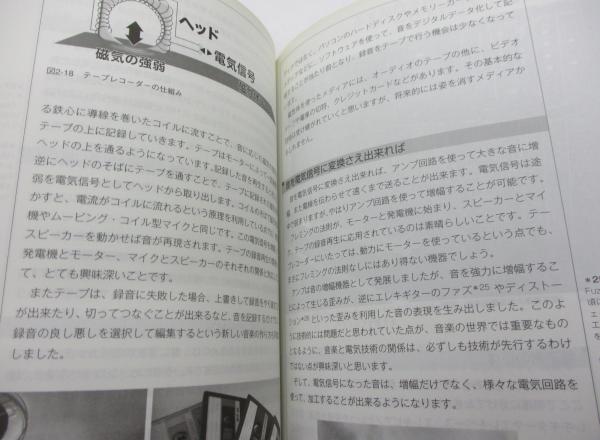 ヘッド
電気信号
磁気の強弱
図2-18 テープレコーダーの仕組み
る鉄心に導線を巻いたコイルに流すことで、音に応じた磁気
テープの上に記録していきます。テープはモーターによって
ヘッドの上を通るようになっています。記録した音を再生する
逆にヘッドのそばにテープを通すことで、テープに記録された
弱を電気信号としてヘッドから取り出します。コイルのそばで
かすと、電流がコイルに流れるという原理を利用している点で
機やムービング・コイル型マイクと同じです。この電気信号を増
スピーカーを動かせば音が再現されます。テープの録音再生の
発電機とモーター、マイクとスピーカーのそれぞれの関係と
て、とても興味深いことです。
またテープは、録音に失敗した場合、上書きして録音をやり直
が出来たり、切ってつなぐことが出来るなど、音を記録するだけで
録音の良し悪しを選択して編集するという新しい音楽の作り方を
しました。
パソコンのハードディスクやメモリーカー
ソフトウェアを使って、音をデジタルデータ化して記
ることが当たり前となり、録音をテープで行う機会は少なくなって
を使ったメディアには、オーディオのテープの他に、ビデオ
や電車の切符、クレジットカードなどがあります。その基本的な
は受け継がれていくと思いますが、将来的には姿を消すメディアか
しれません。
音を電気信号に変換さえ出来れば
音を電気信号に変換さえ出来れば、アンプ回路を使って大きな音に増
幅、また電線を伝わらせて遠くまで送ることが出来ます。電気信号は途
中で弱まりますが、やはりアンプ回路を使って増幅することが可能です。
フレミングの法則が、モーターと発電機に始まり、スピーカーとマイ
ク、テープの録音再生に応用されているのは素晴らしいことです。テー
プレコーダーにいたっては、動力にモーターを使っているという点でも、
まさにフレミングの法則なしにはあり得ない機器でしょう。
アンプは音の増幅器として発展しましたが、音を強力に増幅するこ
とによって生じる歪みが、逆にエレキギターのファズ*25 やディストー
ション*26 といった歪みを利用した音の表現を生み出しました。このよ
うに技術的には問題だと思われていた点が、音楽の世界では重要なもの
となるように、音楽と電気技術の関係は、必ずしも技術が先行するわけ
ではない点が興味深いと思います。
そして、電気信号になった音は、増幅だけでなく、様々な電気回路を
使って、加工することが出来るようになります。
*25
Fuz
頃に